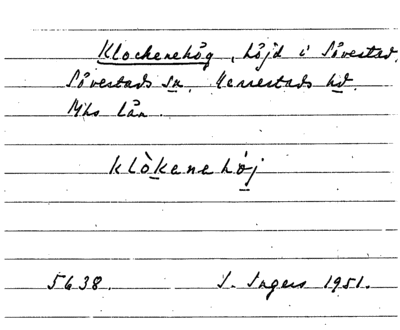 Klockenehög, höjd i Sövestad,
Sövestads sn. Herrestads hd.
Mhs län.
klòkanehöj
5638. I. Ingers 1951.